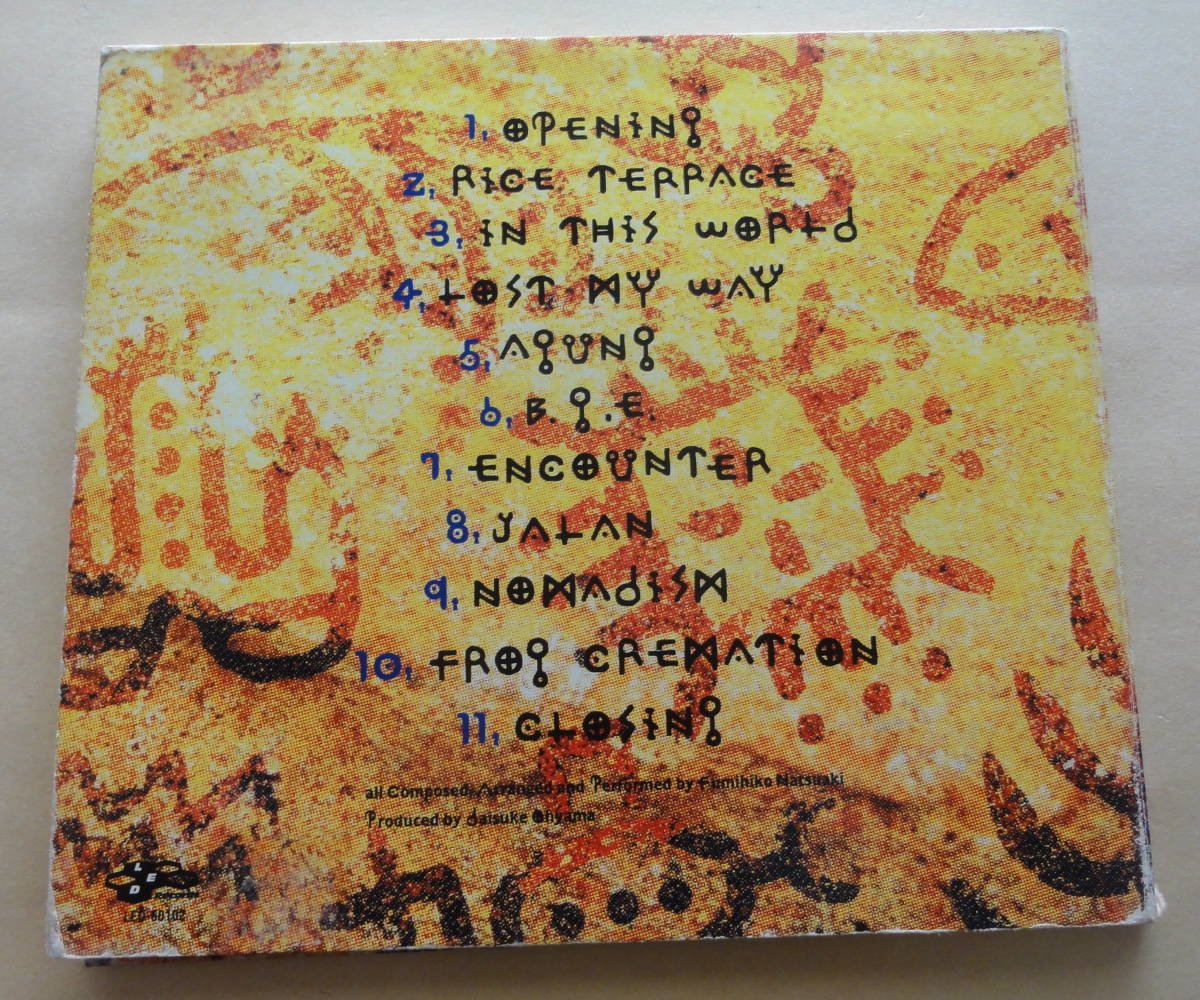 1, OPENING
2, RICE TERRACE
3, IN THIS WORLD
4, LOST MY WAY
5, AGUNG
6, B.G.E.
7, ENCOUNTER
8, JALAN
9, NOMADISM
10, FROG CREMATION
11, CLOSING
all Composed, Arranged and Performed by Fumihiko Natsuaki
Produced by daisuke Ohyama
LED
LED 60102